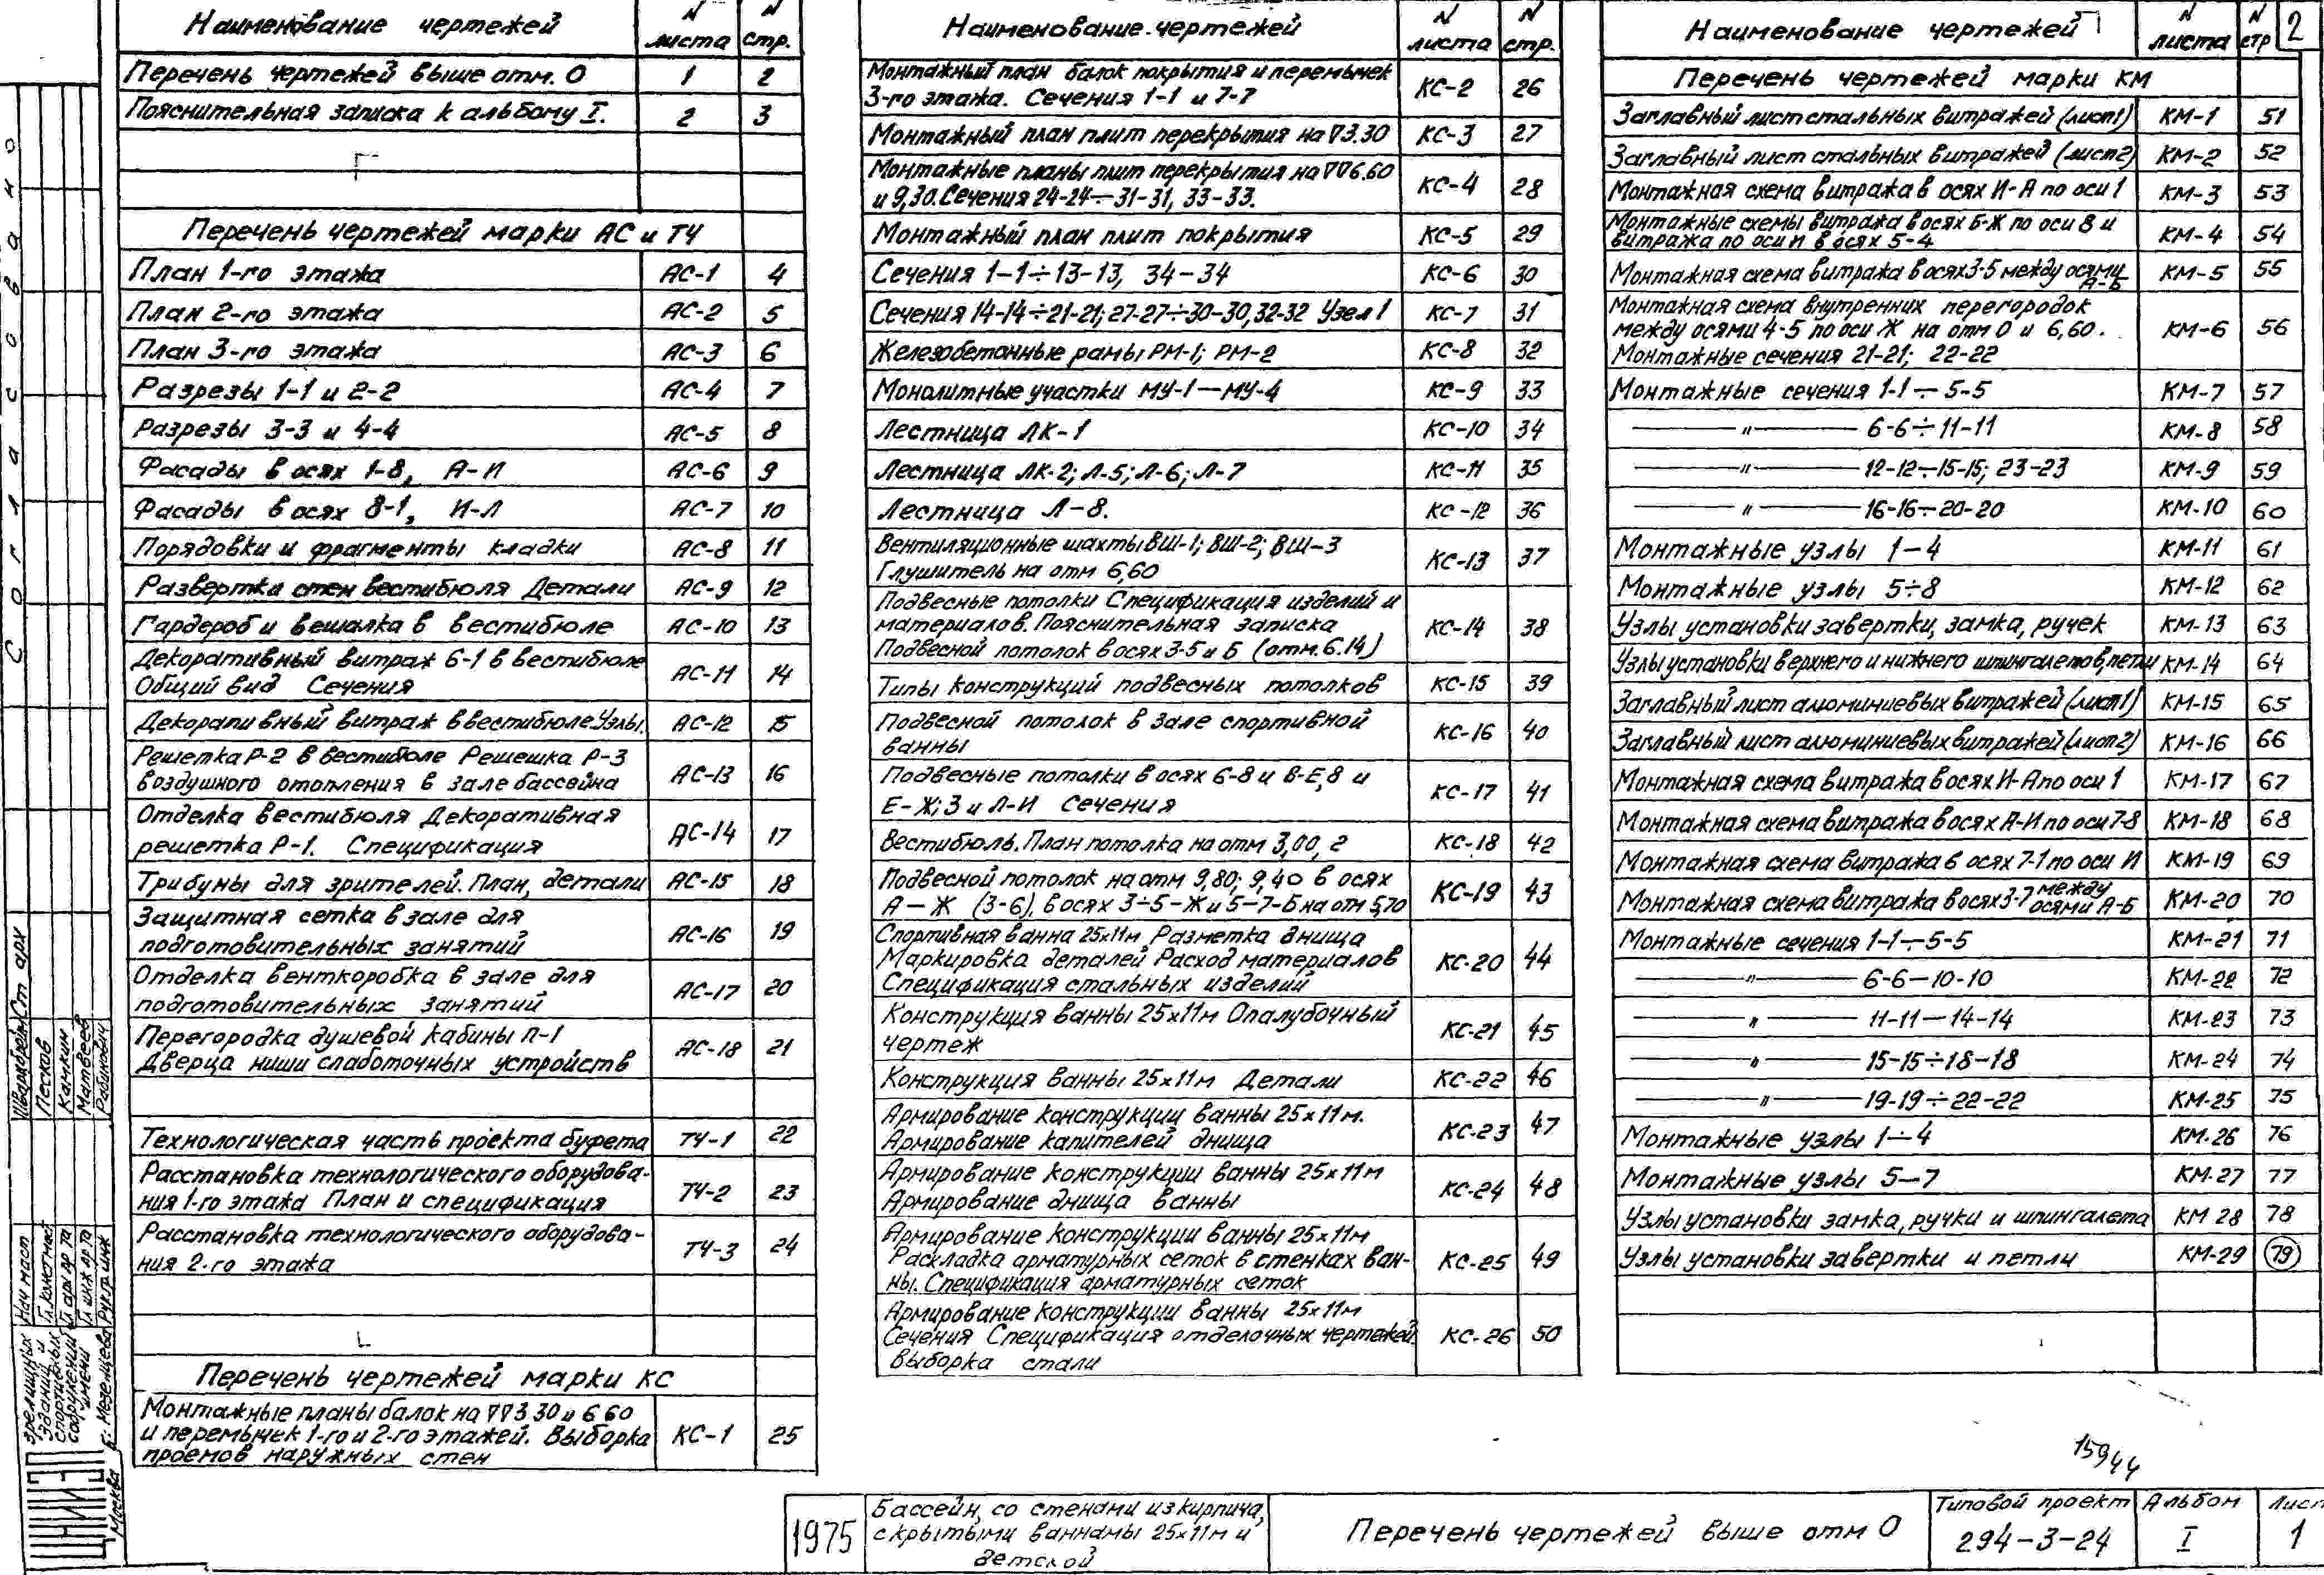 Наименование чертежей N листа N стр.
Перечень чертежей выше отм. 0 1 2
Пояснительная записка к альбому I. 2 3
Перечень чертежей марки АС и ТЧ
План 1-го этажа АС-1 4
План 2-го этажа АС-2 5
План 3-го этажа АС-3 6
Разрезы 1-1 и 2-2 АС-4 7
Разрезы 3-3 и 4-4 АС-5 8
Фасады в осях 1-8, А-И АС-6 9
Фасады в осях 8-1, И-Л АС-7 10
Порядовки и фрагменты кладки АС-8 11
Развертка стен вестибюля Детали АС-9 12
Гардероб и вешалка в вестибюле АС-10 13
Декоративный витраж 6-1 в вестибюле
Общий вид Сечения АС-11 14
Декоративный витраж в вестибюле. Узлы. АС-12 15
Решетка Р-2 в вестибюле Решешка Р-3
воздушного отопления в зале бассейна АС-13 16
Отделка вестибюля Декоративная
решетка Р-1. Спецификация АС-14 17
Трибуны для зрителей. План, детали АС-15 18
Защитная сетка в зале для
подготовительных занятий АС-16 19
Отделка венткоробка в зале для
подготовительных занятий АС-17 20
Перегородка душевой кабины П-1
Дверца ниши слаботочных устройств АС-18 21
Технологическая часть проекта буфета ТЧ-1 22
Расстановка технологического оборудова-
ния 1-го этажа План и спецификация ТЧ-2 23
Расстановка технологического оборудова-
ния 2-го этажа ТЧ-3 24
Перечень чертежей марки КС
Монтажные планы балок на ▽▽3.30 и 6.60
и перемычек 1-го и 2-го этажей. Выборка
проемов наружных стен КС-1 25
Наименование чертежей N листа N стр.
Монтажный план балок покрытия и перемычек
3-го этажа. Сечения 1-1 и 7-7 КС-2 26
Монтажный план плит перекрытия на ▽3.30 КС-3 27
Монтажные планы плит перекрытия на ▽▽6.60
и 9,30. Сечения 24-24÷31-31, 33-33. КС-4 28
Монтажный план плит покрытия КС-5 29
Сечения 1-1÷13-13, 34-34 КС-6 30
Сечения 14-14÷21-21; 27-27÷30-30, 32-32 Узел 1 КС-7 31
Железобетонные рамы РМ-1; РМ-2 КС-8 32
Монолитные участки МУ-1—МУ-4 КС-9 33
Лестница ЛК-1 КС-10 34
Лестница ЛК-2; Л-5; Л-6; Л-7 КС-11 35
Лестница Л-8. КС-12 36
Вентиляционные шахты ВШ-1; ВШ-2; ВШ-3
Глушитель на отм 6,60 КС-13 37
Подвесные потолки Спецификация изделий и
материалов. Пояснительная записка
Подвесной потолок в осях 3-5 и Б (отм. 6.14) КС-14 38
Типы конструкций подвесных потолков КС-15 39
Подвесной потолок в зале спортивной
ванны КС-16 40
Подвесные потолки в осях 6-8 и В-Е, 8 и
Е-Ж; 3 и Л-И Сечения КС-17 41
Вестибюль. План потолка на отм 3,00, 2 КС-18 42
Подвесной потолок на отм 9,80; 9,40 в осях
А-Ж (3-6), в осях 3÷5-Ж и 5-7-Б на отм 5,70 КС-19 43
Спортивная ванна 25х11м. Разметка днища
Маркировка деталей Расход материалов
Спецификация стальных изделий КС-20 44
Конструкция ванны 25х11м Опалубочный
чертеж КС-21 45
Конструкция ванны 25х11м Детали КС-22 46
Армирование конструкции ванны 25х11м.
Армирование капителей днища КС-23 47
Армирование конструкции ванны 25х11м
Армирование днища ванны КС-24 48
Армирование конструкции ванны 25х11м
Раскладка арматурных сеток в стенках ван-
ны. Спецификация арматурных сеток КС-25 49
Армирование конструкции ванны 25х11м
Сечения Спецификация отделочных чертежей.
выборка стали КС-26 50
Наименование чертежей N листа N стр 2
Перечень чертежей марки КМ
Заглавный лист стальных витражей (лист 1) КМ-1 51
Заглавный лист стальных витражей (лист 2) КМ-2 52
Монтажная схема витража в осях И-А по оси 1 КМ-3 53
Монтажные схемы витража в осях Б-Ж по оси 8 и
витража по оси И в осях 5-4 КМ-4 54
Монтажная схема витража в осях 3-5 между осями А-Б КМ-5 55
Монтажная схема внутренних перегородок
между осями 4-5 по оси Ж на отм 0 и 6,60.
Монтажные сечения 21-21; 22-22 КМ-6 56
Монтажные сечения 1-1÷5-5 КМ-7 57
—— " —— 6-6÷11-11 КМ-8 58
—— " —— 12-12÷15-15; 23-23 КМ-9 59
—— " —— 16-16÷20-20 КМ-10 60
Монтажные узлы 1-4 КМ-11 61
Монтажные узлы 5÷8 КМ-12 62
Узлы установки завертки, замка, ручек КМ-13 63
Узлы установки верхнего и нижнего шпингалетов, петли КМ-14 64
Заглавный лист алюминиевых витражей (лист 1) КМ-15 65
Заглавный лист алюминиевых витражей (лист 2) КМ-16 66
Монтажная схема витража в осях И-А по оси 1 КМ-17 67
Монтажная схема витража в осях А-И по оси 7-8 КМ-18 68
Монтажная схема витража в осях 7-1 по оси И КМ-19 69
Монтажная схема витража в осях 3-7 между осями А-Б КМ-20 70
Монтажные сечения 1-1÷5-5 КМ-21 71
—— " —— 6-6—10-10 КМ-22 72
—— " —— 11-11—14-14 КМ-23 73
—— " —— 15-15÷18-18 КМ-24 74
—— " —— 19-19÷22-22 КМ-25 75
Монтажные узлы 1÷4 КМ-26 76
Монтажные узлы 5—7 КМ-27 77
Узлы установки замка, ручки и шпингалета КМ 28 78
Узлы установки завертки и петли КМ-29 79
15944
1975
Бассейн, со стенами из кирпича,
с крытыми ваннамы 25х11м и
детской
Перечень чертежей выше отм 0
Типовой проект
294-3-24
Альбом
I
Лист
1
Согласовано
Ст. арх
Песков
Камкин
Матвеев
Рабинович
Нач маст
Гл. констмаст
Гл арх ар та
Гл инж ар та
Рук.гр. инж
зрелищных
зданий и
спортивных
сооружений
имени
Б. Мезенцева
ЦНИИЭП
Москва